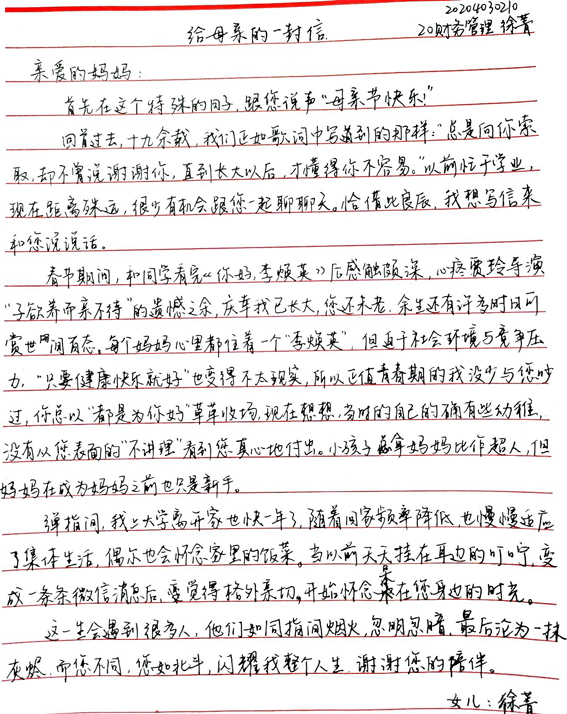 20204030210
给母亲的一封信 20财务管理 徐菁
亲爱的妈妈：
首先在这个特殊的日子，跟您说声“母亲节快乐！”
回首过去，十九余载，我们正如歌词中写道别的那样：“总是向你索
取，却不曾说谢谢你，直到长大以后，才懂得你不容易。”以前忙于学业，
现在距离殊远，很少有机会跟您一起聊聊天。恰借此良辰，我想写信来
和您说说话。
春节期间，和同学看完《你好，李焕英》后感触颇深，心疼贾玲导演
“子欲养而亲不待”的遗憾之余，庆幸我已长大，您还未老，余生还有许多时日可
赏世间百态。每个妈妈心里都住着一个“李焕英”，但迫于社会环境与竞争压
力，“只要健康快乐就好”也变得不太现实，所以正值青春期的我没少与您吵
过，你总以“都是为你好”草草收场，现在想想，当时的自己的确有些幼稚，
没有从您表面的“不讲理”看到您真心地付出。小孩子总拿妈妈比作超人，但
妈妈在成为妈妈之前也只是新手。
弹指间，我上大学离开家也快一年了，随着回家频率降低，也慢慢适应
了集体生活，偶尔也会怀念家里的饭菜。当以前天天挂在耳边的叮咛，变
成一条条微信消息后，变觉得格外亲切，开始怀念呆在您身边的时光。
这一生会遇到很多人，他们如同指间烟火，忽明忽暗，最后沦为一抹
灰烬，而您不同，您如北斗，闪耀我整个人生，谢谢您的陪伴。
女儿：徐菁